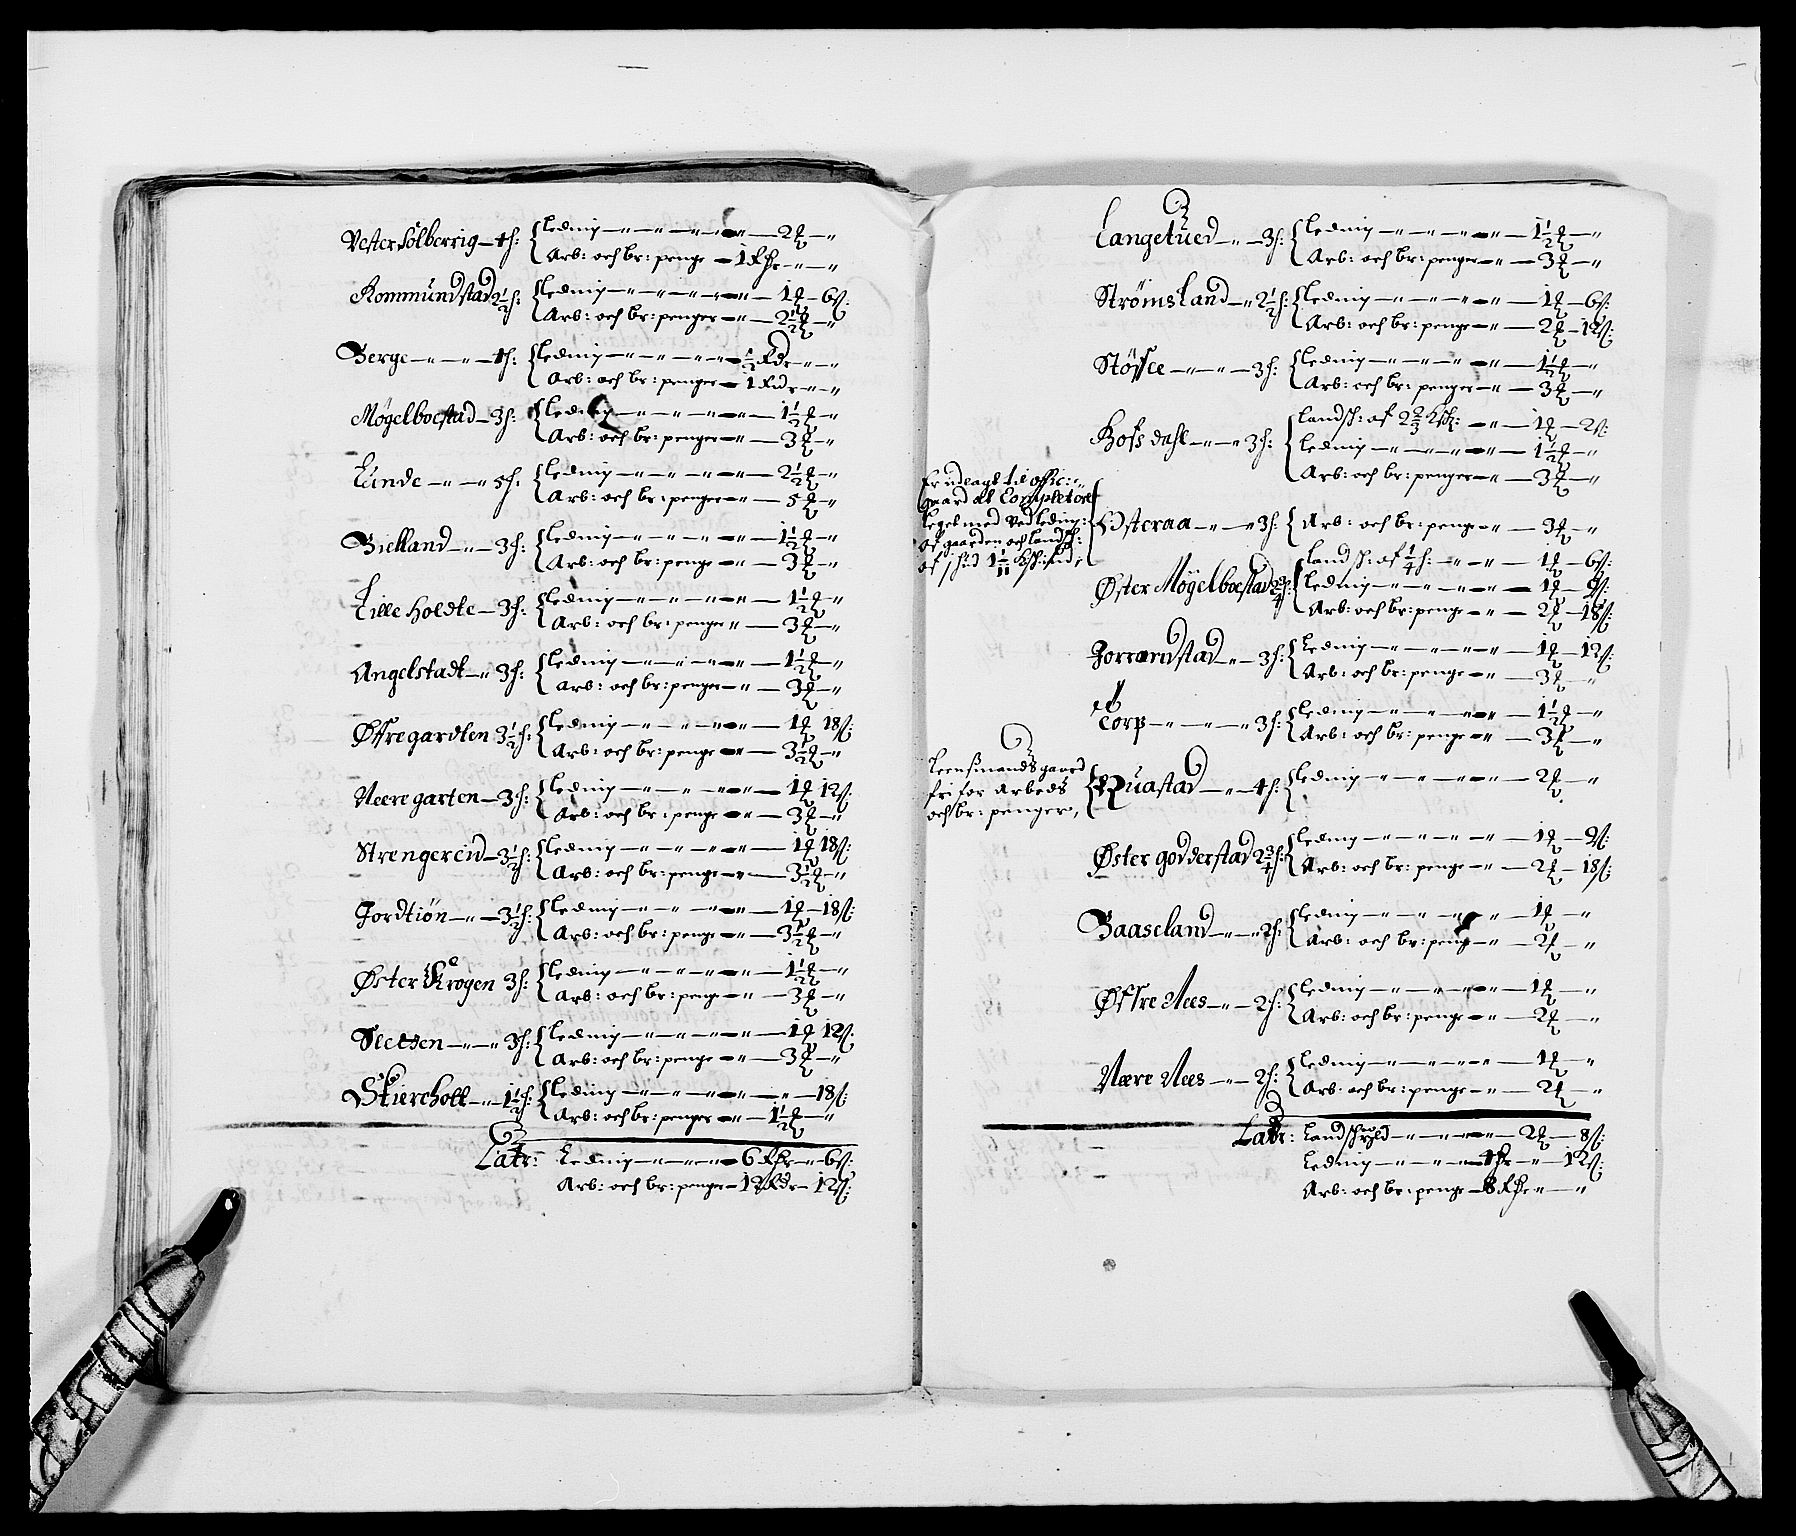 Vester Sölberrig – 4 h: { Leding – „ – „ – „ – 2 ꝗ – „
Arb: och br: penge – 1 Rdr – „ – „
Kommundstad 2½ h: { Leding – „ – „ – „ – 1 ꝗ – 6 ß:
Arb: och br: penger – „ – 2½ ꝗ – „
Berge – „ – „ – 4 h: { Leding – „ – „ – „ – ½ Rdr – „ – „
Arb: och br: penger – 1 Rdr – „ – „
Mögelboestad – 3 h: { Leding – „ – „ – „ – 1½ ꝗ – „
Arb: och br: penger – „ – 3 ꝗ – „
Lunde – „ – „ 5 h: { Leding – „ – „ – „ – 2½ ꝗ – „
Arb: och br: penger – „ – 5 ꝗ – „
Bielland – „ – 3 h: { Leding – „ – „ – „ – 1½ ꝗ – „
Arb: och br: penge – „ – 3 ꝗ – „
Lille Holdte – 3 h: { Leding – „ – „ – „ – 1½ ꝗ – „
Arb: och br: penger „ – 3 ꝗ – „
Angelstadt – „ 3 h: { Leding – „ – „ – „ – 1½ ꝗ – „
Arb: och br: penger – „ – 3 ꝗ – „
Øfre gardten 3½ h: { Leding – „ – „ – „ – 1 ꝗ 18 ß:
Arb: och br: penge – „ – 3½ ꝗ – „
Neere garten – 3 h: { Leding – „ – „ – „ – 1 ꝗ 12 ß:
Arb: och br: penge – „ – 3 ꝗ – „
Strengereid – 3½ h: { Leding – „ – „ – „ – 1 ꝗ 18 ß:
Arb: och br: penge – „ – 3½ ꝗ – „
Jordtiön – „ – 3½ h: { Leding – „ – „ – „ – 1 ꝗ – 18 ß:
Arb: och br: penge – „ – 3½ ꝗ – „
Øster Krogen 3 h: { Leding – „ – „ – „ – 1½ ꝗ – „
Arb: och br: penge – „ – 3 ꝗ – „
Sletten – „ – „ 3 h: { Leding – „ – „ – „ – 1 ꝗ 12 ß:
Arb: och br: penge – „ – 3 ꝗ – „
Skiercholt – „ – 1½ h: { Leding – „ – „ – „ – „ – 18 ß:
Arb: och br: penger – „ – 1½ ꝗ – „
Latr: Leding – „ – „ – „ – 6 Rdr – „ – 6 ß:
Arb: och br: penger – 12 Rdr – 12 ß:
Langetued – „ – 3 h: { Leding – „ – „ – „ – 1½ ꝗ – „
Arb: och br: penger – „ – 3 ꝗ – „
Strömsland – „ 2½ h: { Leding – „ – „ – „ – 1 ꝗ – 6 ß:
Arb: och br: penge – „ – 2 ꝗ – 12 ß:
Stösse – „ – „ – 3 h: { Leding – „ – „ – „ – 1½ ꝗ – „
Arb: och br: penger – „ – 3 ꝗ – „
Hofsdahl – „ – „ 3 h: { Landsh: af 2⅔ – „ – 1 ꝗ – 2 ß:
Leding – „ – „ – „ – 1½ ꝗ – „
Arb: och br: penger – „ – 3 ꝗ – „
Er udlagt til offic: –
gaard at Completere
leget med ved leding:
af gaarden och landsh:
Osteraa – „ – „ 3 h: { Arb: och br: penge – „ – 3 ꝗ – „
Øster Mögelboestad 2¾ h: { Landsh: af ¼ h: – „ – „ – 1 ꝗ – 6 ß:
Leding – „ – „ – „ – 1 ꝗ – 9 ß:
Arb: och br: penge – „ – 2 ꝗ – 18 ß:
Jorrandstad – „ – 3 h: { Leding – „ – „ – „ – 1 ꝗ – 12 ß:
Arb: och br: penge – „ – 3 ꝗ – „
Torp – „ – „ – „ 3 h: { Leding – „ – „ – „ – 1½ ꝗ – „
Arb: och br: penge – „ – 3 ꝗ – „
Leensmands gaard
fri for Arbeds
och br: penger,
Quastad – „ – 4 h: { Leding – „ – „ – „ – 2 ꝗ – „
Øster godderstad 2¾ h: { Leding – „ – „ – „ – 1 ꝗ – 9 ß:
Arb: och br: penge – „ – 2 ꝗ – 18 ß:
Baaseland – „ – „ 2 h: { Leding – „ – „ – „ – 1 ꝗ – „
Arb: och br: penge – „ – 2 ꝗ – „
Øfre Nees – „ – 2 h: { Leding – „ – „ – „ – 1 ꝗ – „
Arb: och br: penge – „ – 2 ꝗ – „
Nere Nees – „ – 2 h: { Leding – „ – „ – „ – 1 ꝗ – „
Arb: och br: penge – „ – 2 ꝗ – „
Latr: Landskyld – „ – „ – 2 ꝗ – 8 ß:
Leding – „ – „ – 4 Rdr – „ – 12 ß:
Arb: och br: penge – 8 Rdr – „ – „